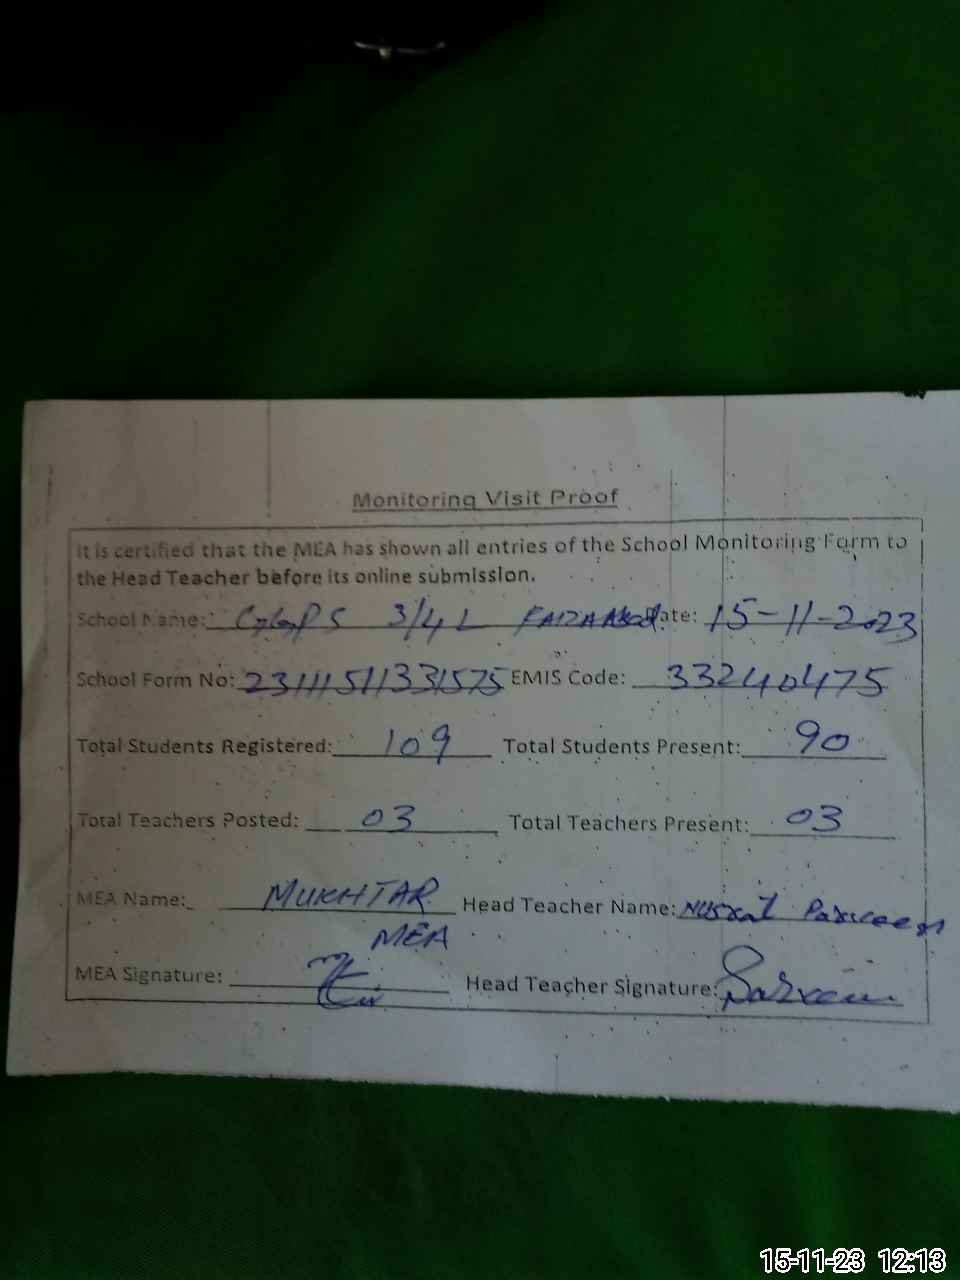 Monitoring Visit Proof
It is certified that the MEA has shown all entries of the School Monitoring Form to
the Head Teacher before its online submission.
School Name: GGPS 3/4 L FAIZABAD Date: 15-11-2023
School Form No: 23111511331575 EMIS Code: 33240475
Total Students Registered: 109 Total Students Present: 90
Total Teachers Posted: 03 Total Teachers Present: 03
MEA Name: MUKHTAR Head Teacher Name: Nusrat Parveen
MEA
MEA Signature: Head Teacher Signature: Parveen
15-11-23 12:13